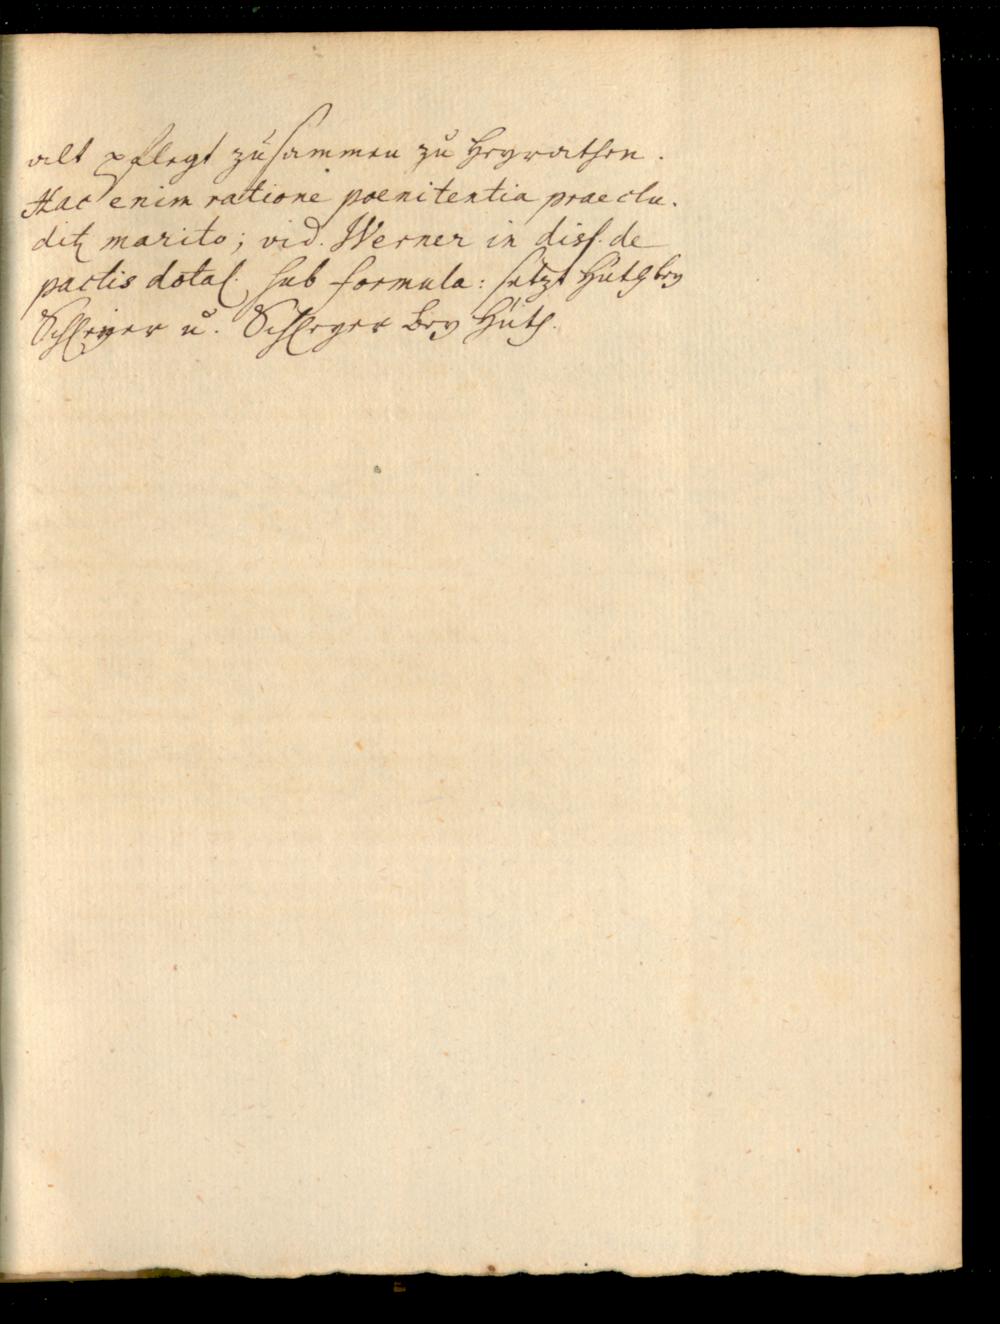 alt pflegt zusammen zu heyrathen.
Hac enim ratione poenitentia praeclu-
ditꝫ marito; vid. Werner in diss. de
pactis dotal. sub formula: setzt Huth bey
Schleyer u. Schleyer bey Huth.